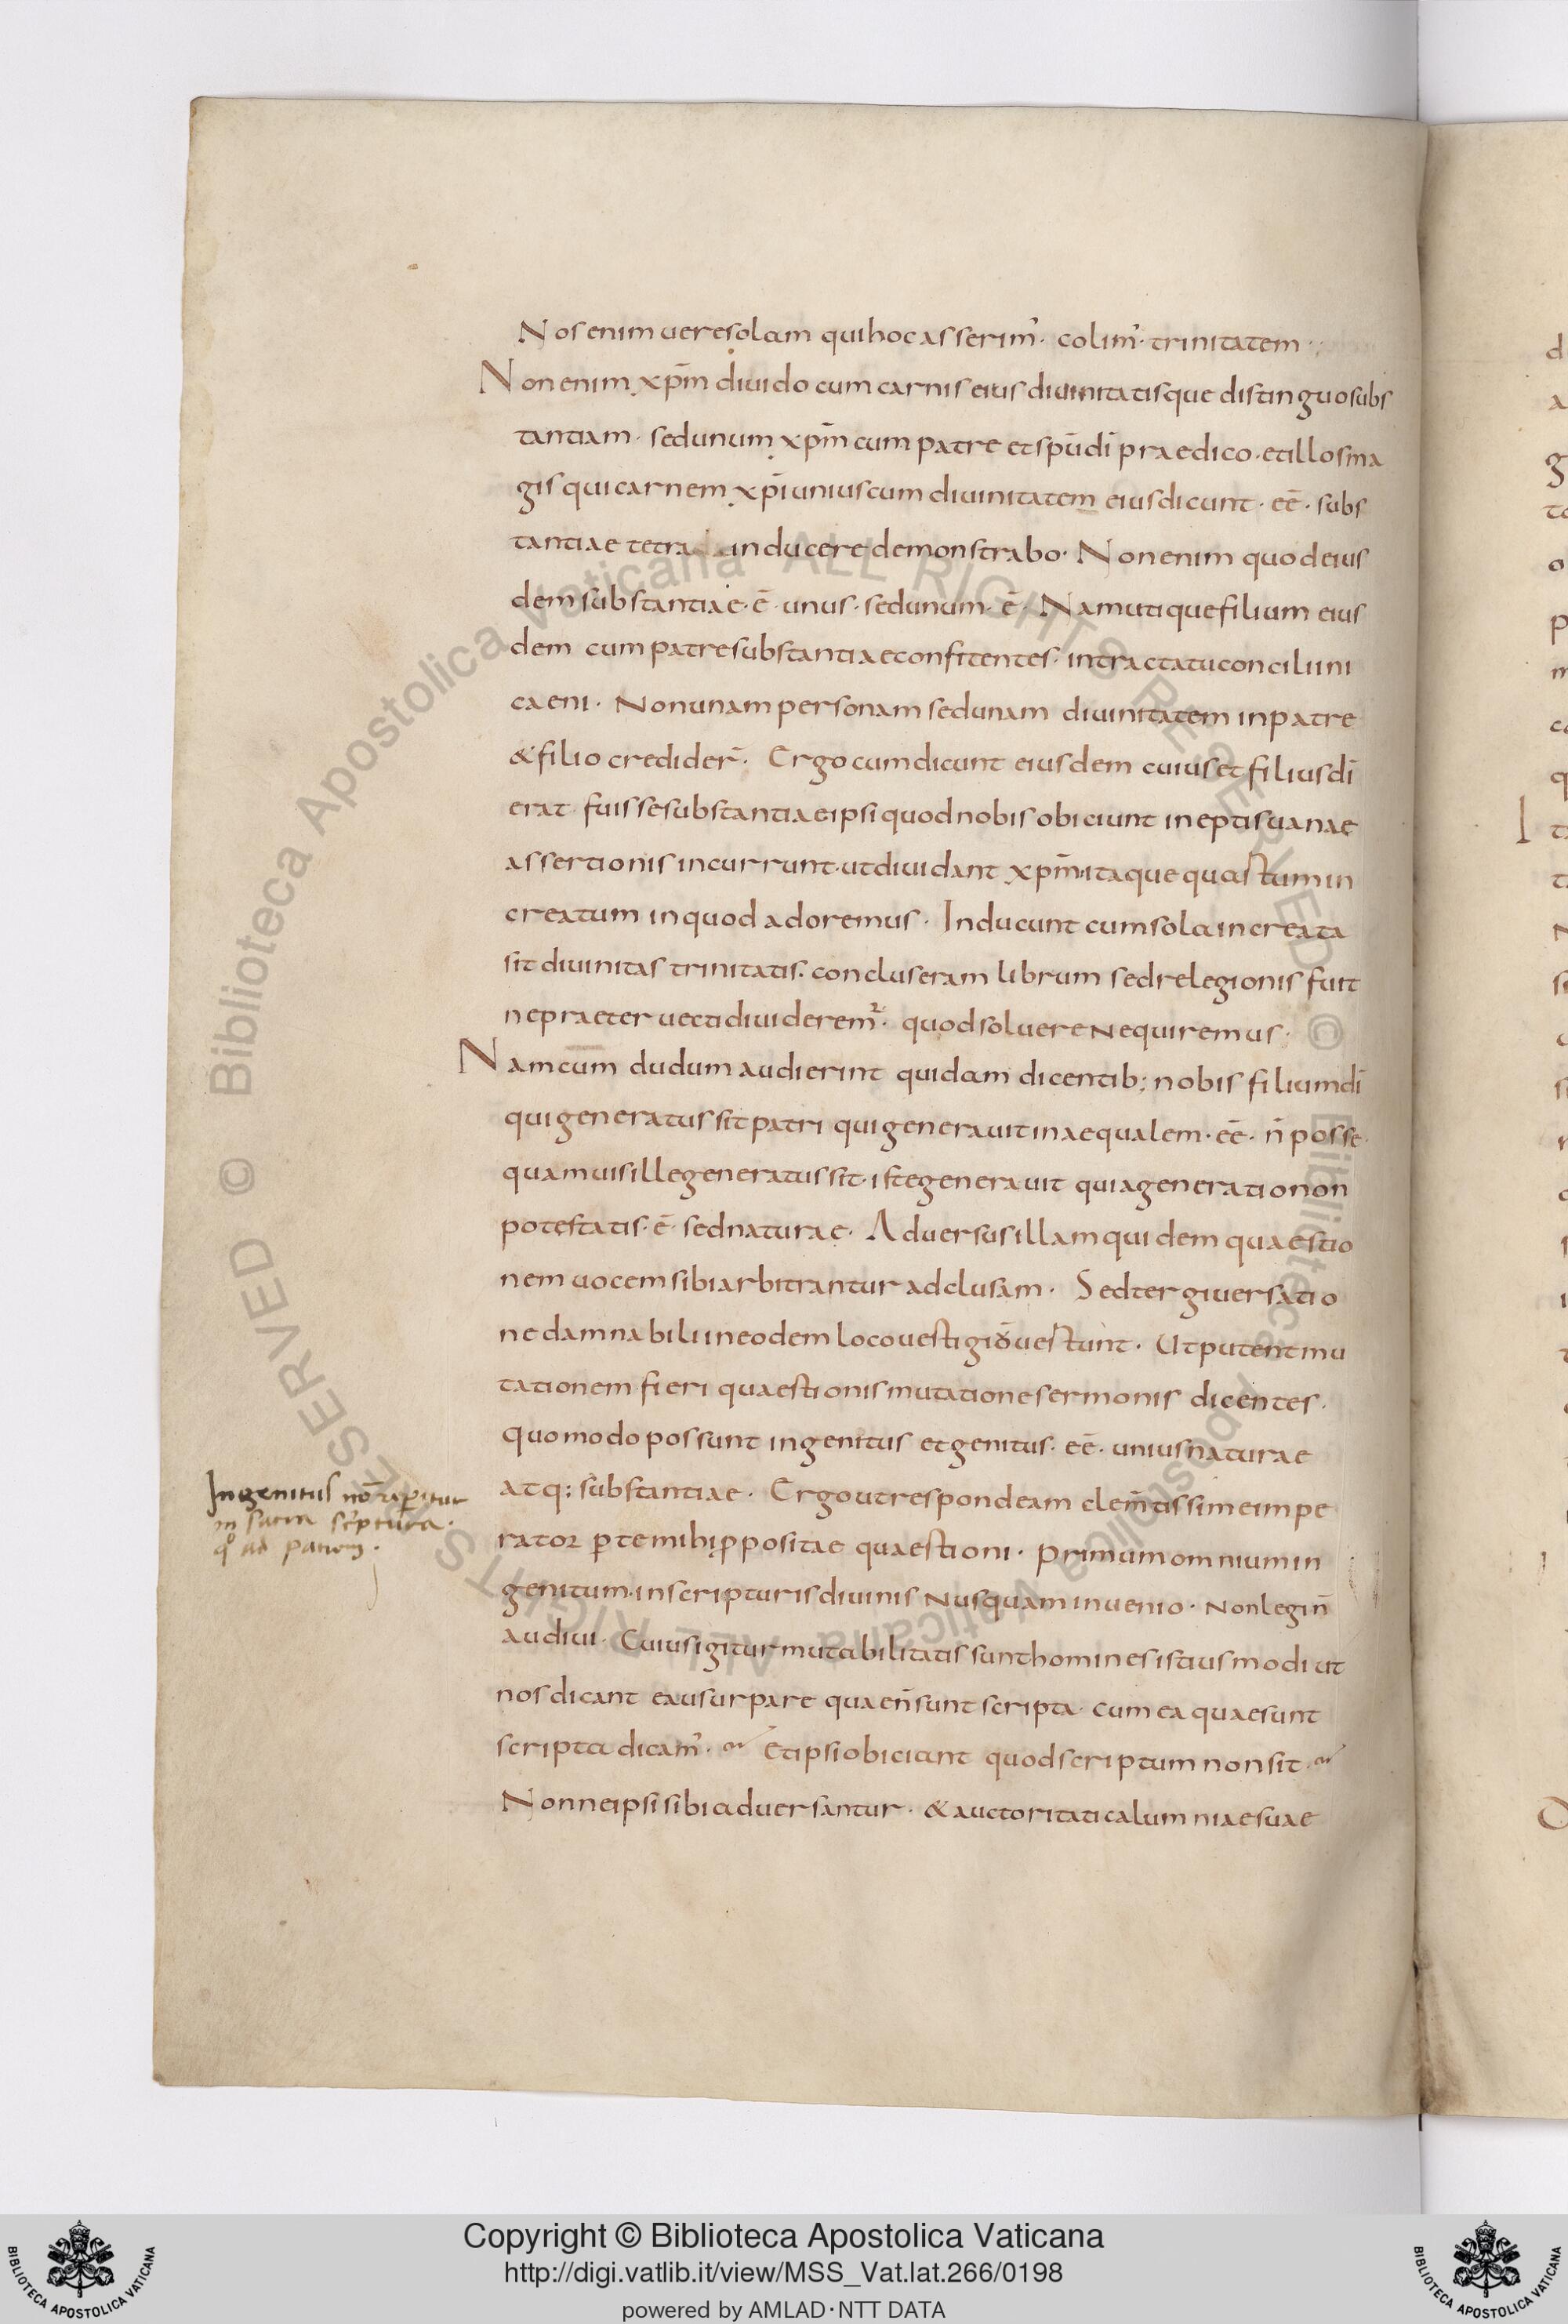 Nos enim uere solam qui hoc asserim᾿· colim᾿· trinitatem·
Non enim xp̄m diuido cum carnis eius diuinitatisque distinguo subs
tantiam· sed unum xp̄m cum patre et spū dī praedico· et illos ma
gis qui carnem xp̄i unius cum diuinitatem eius dicunt· eē· subs
tantiae tetra inducere demonstrabo· Non enim quod eius
dem substantiae· ē· unus· sed unum· ē· Nam utique filium eius
dem cum patre substantiae confitentes· in tractatu concilii ni
caeni· Non unam personam sed unam diuinitatem in patre
& filio credider̄· Ergo cum dicunt eiusdem cuius et filius dī
erat· fuisse substantiae ipsi quod nobis obiciunt ineptis uanae
assertionis incurrunt· ut diuidant xp̄m· itaque quastum in
creatum inquod adoremus· Inducunt cum sola increata
sit diuinitas trinitatis· concluseram librum sed relegionis fuit
ne praeter uecti diuiderem᾿· quod soluere nequiremus·
Nam cum dudum audierint quidam dicentib; nobis filium dī
qui generatus sit patri qui generauit inaequalem· eē· n̄ posse·
quamuis ille generatus sit· iste generauit quia generatio non
potestatis· ē· sed naturae· Aduersus illam quidem quaestio
nem uocem sibi arbitrantur adclusam· Sed tergiuersatio
ne damnabili in eodem loco uestigiū uestunt· Ut putent mu
tationem fieri quaestionis mutatione sermonis dicentes·
quomodo possunt ingenitus et genitus· eē· unius naturae
atq: substantiae· Ergo ut respondeam clem̄tissime impe
rator ꝑ te mihi ꝓpositae quaestioni· Primum omnium in
genitum· in scripturis diuinis nusquam inuenio· non legi n̄
audiui· Cuius igitur mutabilitatis sunt homines istius modi ut
nos dicant ea usurpare quae n̄ sunt scripta· cum ea quae sunt
scripta dicam᾿· Et ipsi obiciant quod scriptum non sit·
Nonne ipsi sibi aduersantur· & auctoritati calumniae suae
Ingenitus nō repitur
in sacra scrptura·
qͦ ad patrem·
Copyright © Biblioteca Apostolica Vaticana
http://digi.vatlib.it/view/MSS_Vat.lat.266/0198
powered by AMLAD·NTT DATA
BIBLIOTECA APOSTOLICA VATICANA
BIBLIOTECA APOSTOLICA VATICANA
© Biblioteca Apostolica Vaticana ALL RIGHTS RESERVED © Biblioteca Apostolica Vaticana ALL RIGHTS RESERVED